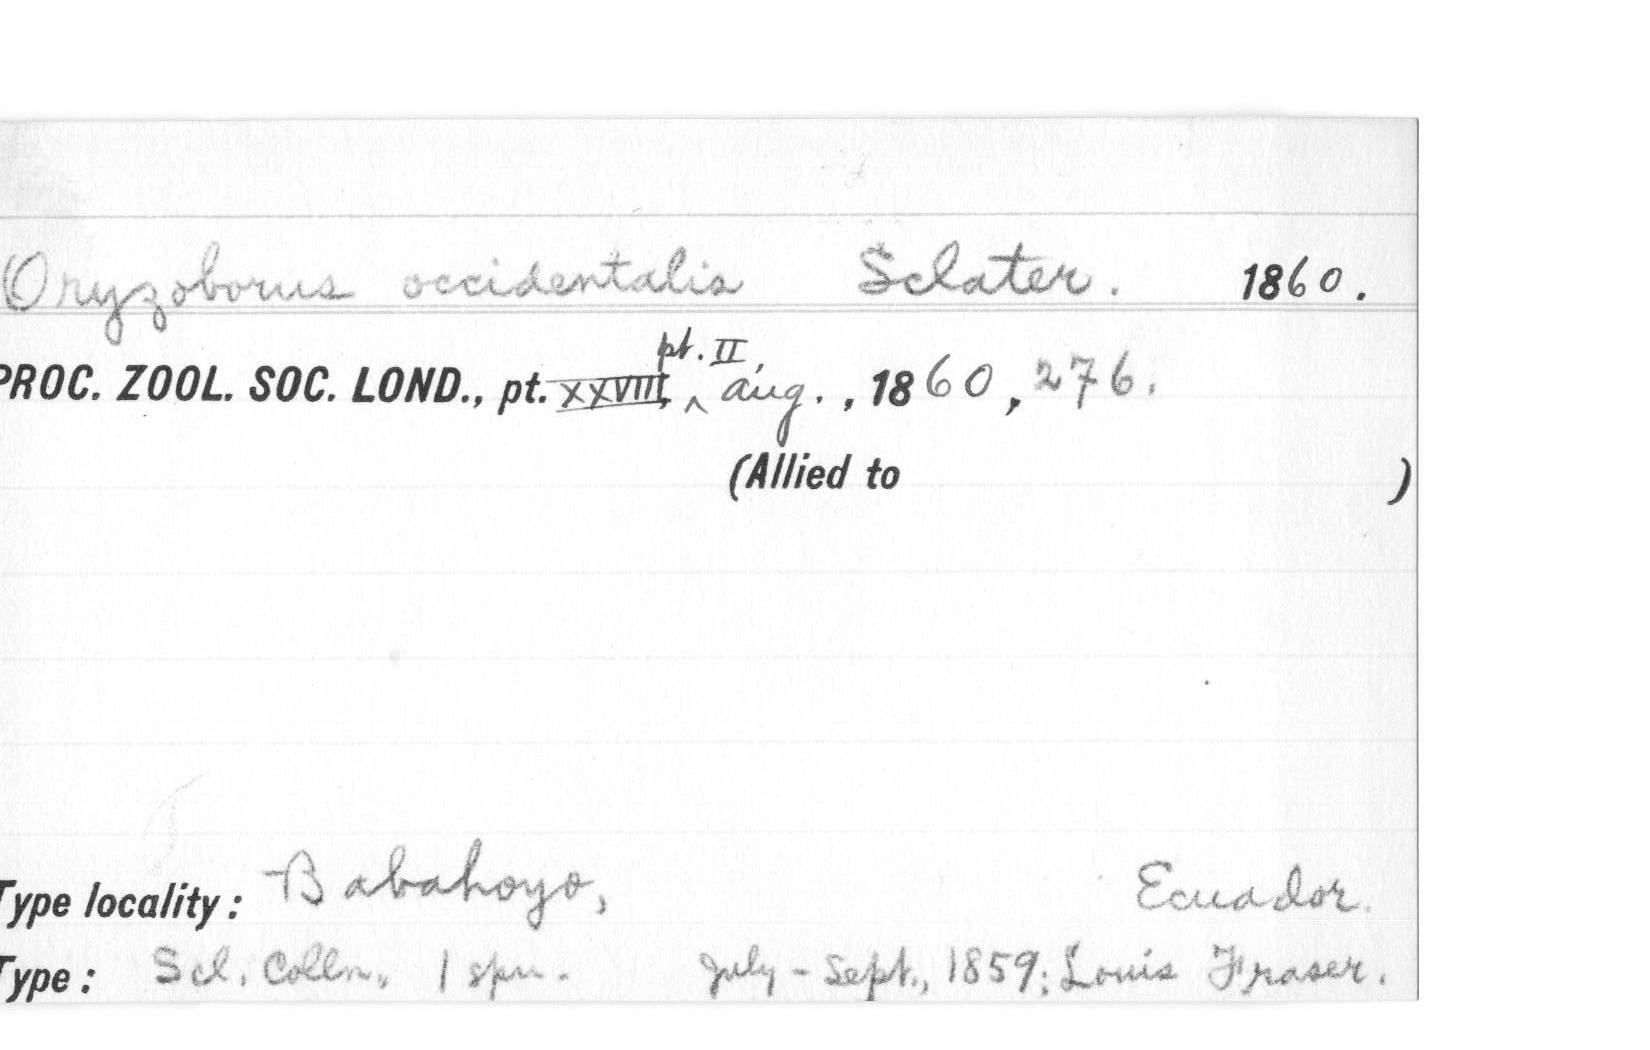 Oryzoborus occidentalis Sclater. 1860.
pt. II,
PROC. ZOOL. SOC. LOND., pt. XXVIII, ^ Aug. , 1860, 276.
(Allied to )
Type locality: Babahoyo, Ecuador.
Type: Scl. Colln., 1 spn. July - Sept., 1859; Louis Fraser.